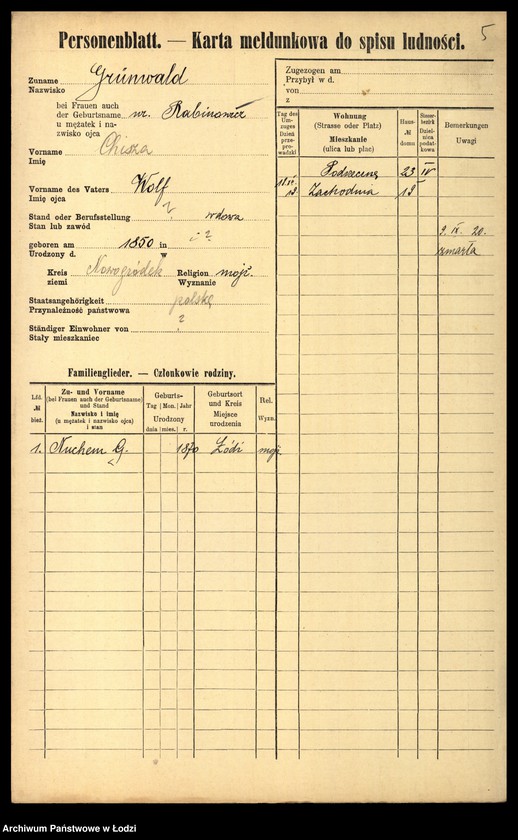 5
Personenblatt. — Karta meldunkowa do spisu ludności.
Zuname Grünwald
Nazwisko
bei Frauen auch
der Geburtsname nr. Rabinowicz
u mężatek i na-
zwisko ojca
Vorname Chisza
Imię
Vorname des Vaters Wolf
Imię ojca
Stand oder Berufsstellung wdowa
Stan lub zawód
geboren am 1850 in ?
Urodzony d. w
Kreis Nowogródek Religion mojż.
ziemi Wyznanie
Staatsangehörigkeit polska
Przynależność państwowa
Ständiger Einwohner von ?
Stały mieszkaniec
Zugezogen am
Przybył w d.
von
z
Tag des Um-zuges Dzień prze-prowadzki
Wohnung
(Strasse oder Platz)
Mieszkanie
(ulica lub plac)
Haus-№ domu
Steuer-bezirk Dziel-nica podat-kowa
Bemerkungen
Uwagi
Podrzeczna 23 IV
Zachodnia 19
2. IX. 20.
zmarła
Familienglieder. — Członkowie rodziny.
Lfd. № bież.
Zu- und Vorname
(bei Frauen auch der Geburtsname)
und Stand
Nazwisko i imię
(u mężatek i nazwisko ojca)
i stan
Geburts-
Tag Mon. Jahr
Urodzony
dnia mies. r.
Geburtsort
und Kreis
Miejsce
urodzenia
Rel.
Wyzn.
1. Nuchem G. 1870 Łódź mojż.
Archiwum Państwowe w Łodzi